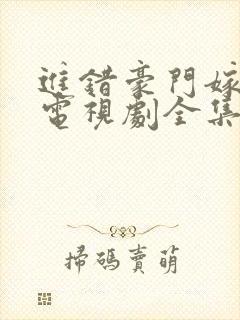 進錯豪門嫁
電視劇全集
掃碼賣萌